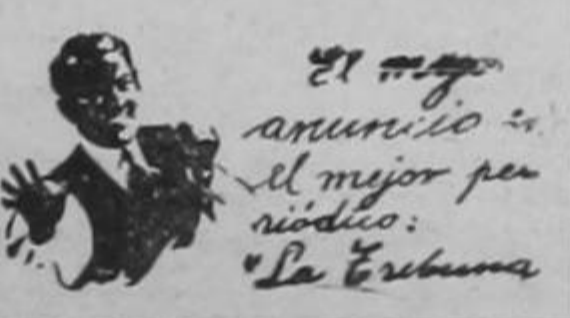 El mejor
anuncio :
el mejor pe
riódico:
"La Tribuna